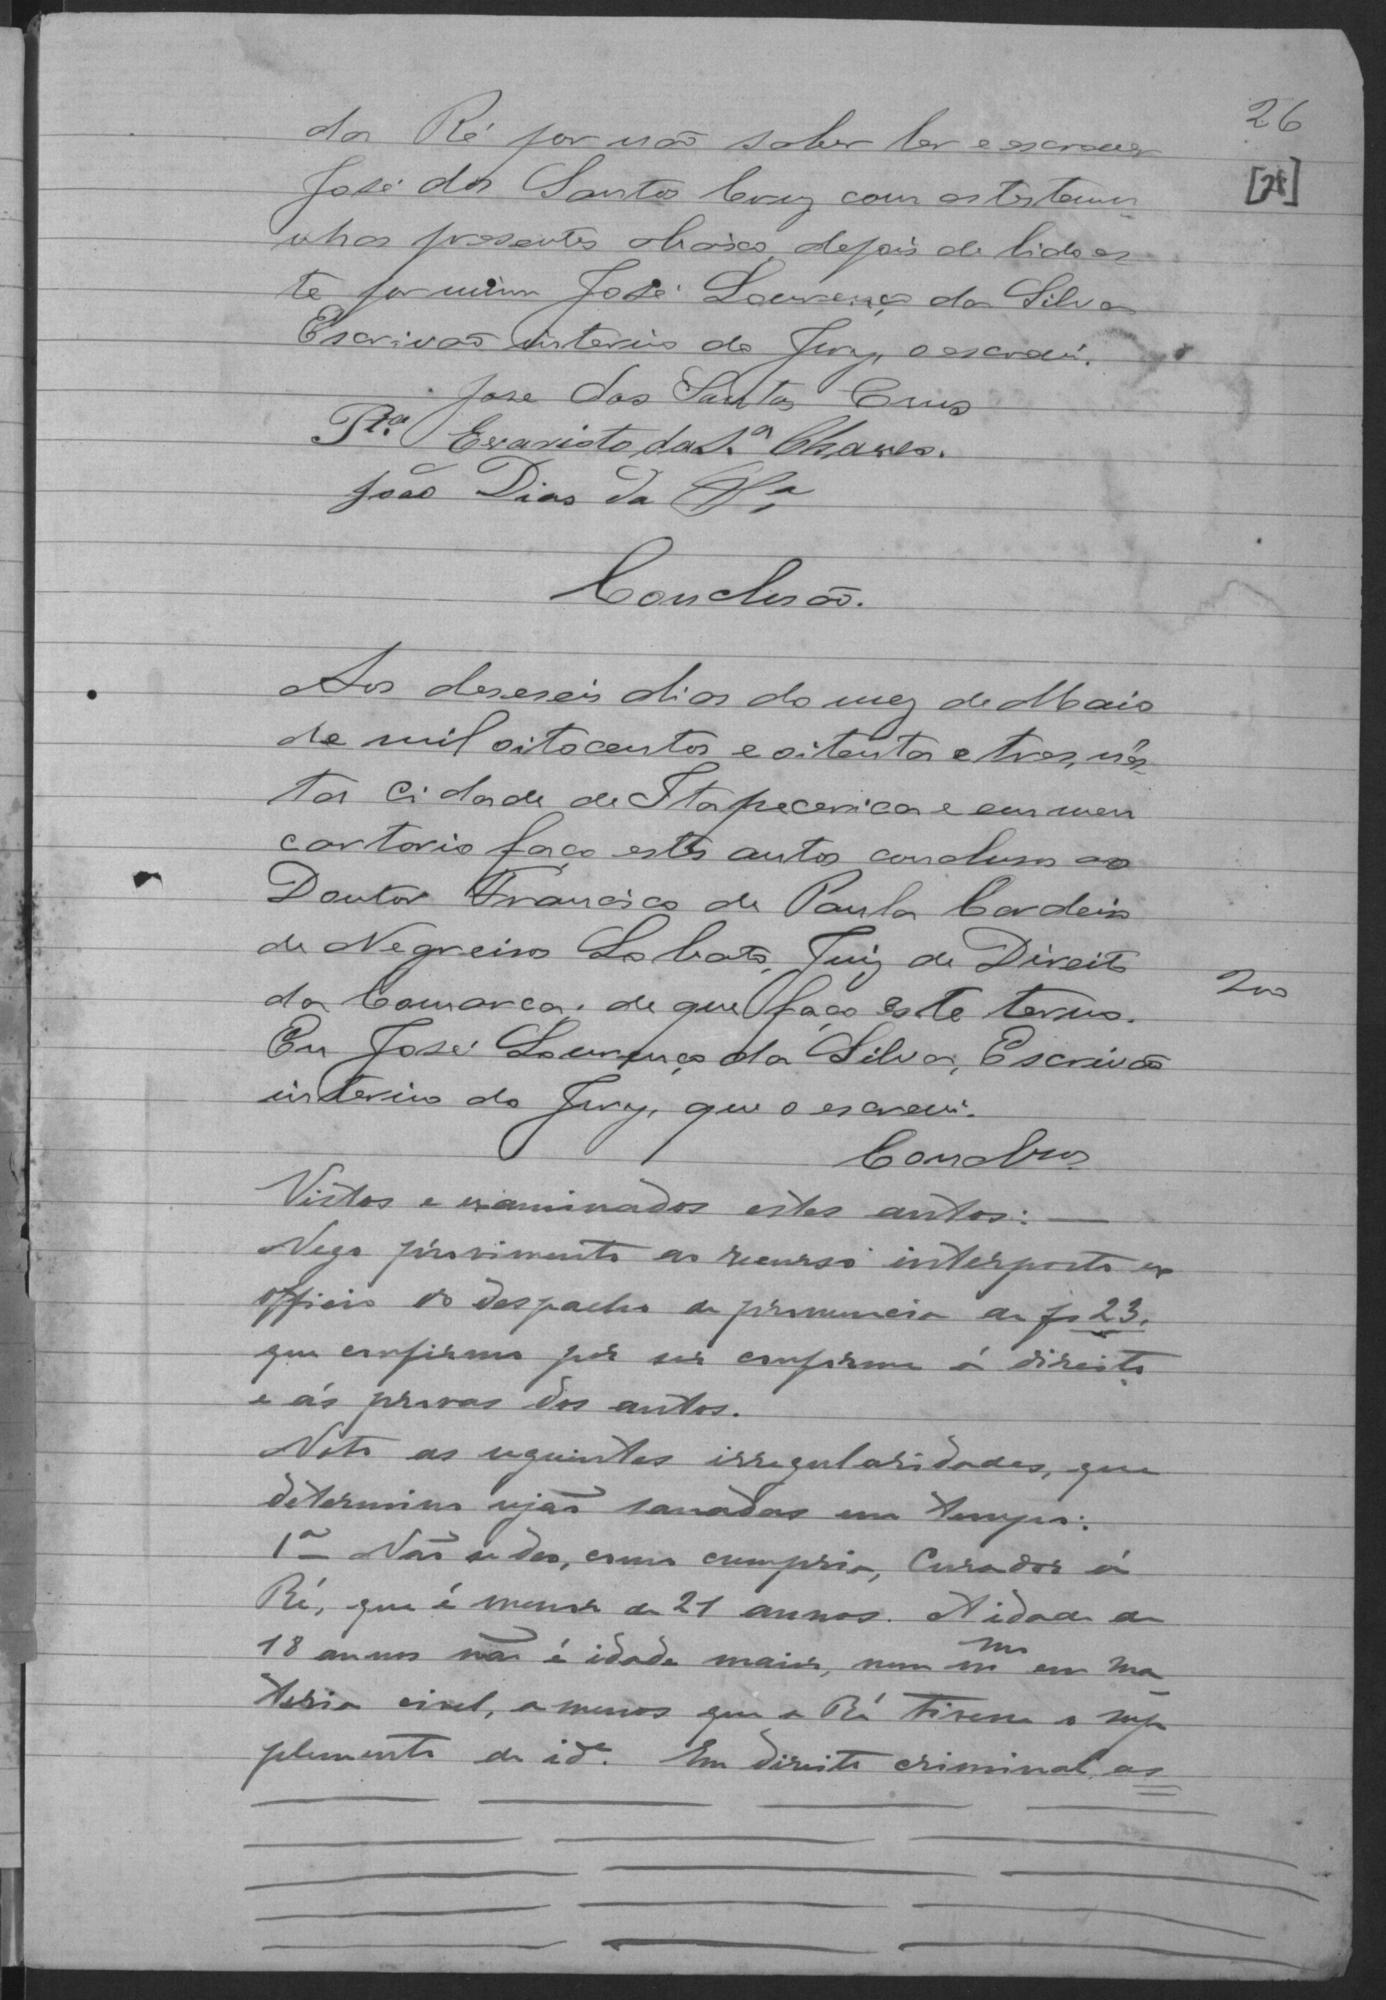 26
[21]
da Ré por não saber ler e escrever
José dos Santos Cruz com as testemu-
nhas presentes abaixo, depois de lido es-
te por mim José Lourenço da Silva
Escrivão interino do Jury, o escrevi.
Jose dos Santos Cruz
Evaristo da S.ª Chaves.
João Dias da S.ª
Conclusão.
Aos deseseis dias do mez de Maio
de mil oitocentos e oitenta e tres, nes-
ta cidade de Itapecerica e em meu
cartorio faço estes autos concluso ao
Doutor Francisco de Paula Cordeiro
de Negreiros Lobato, Juiz de Direito
da Comarca. de que faço este termo.
200
Eu José Lourenço da Silva, Escrivão
interino do Jury, que o escrevi.
Conclusos
Vistos e examinados estes autos: —
Nego provimento ao recurso interposto ex
officio do despacho de pronuncia de fs 23,
que confirmo por ser conforme á direito
e ás provas dos autos.
Noto as seguintes irregularidades, que
determino sejão sanadas em tempo:
1ª Não se deo, como cumpria, Curador á
Ré, que é menor de 21 annos. A idade de
18 annos não é idade maior, nem m.mo em ma-
teria civel, a menos que a Ré tivesse o sup
plemento de id.e Em direito criminal as